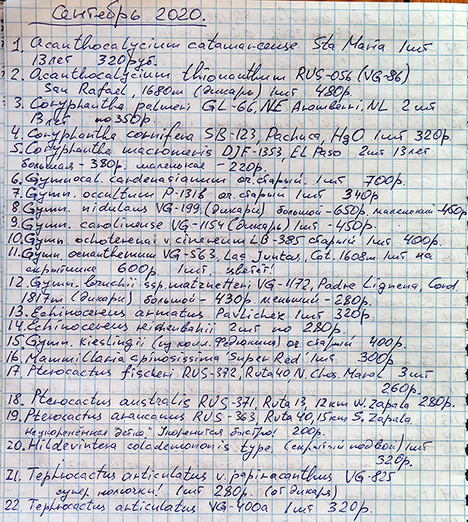 Сентябрь 2020.
1. Acanthocalycium catamarcense Sta Maria 1шт
13лет 320руб.
2. Acanthocalycium thionanthum RUS-056 (VG-86)
San Rafael, 1680m (дикари) 1шт 480р.
3. Coryphantha palmeri GL-66, NE Aramberri, NL 2шт
13лет по 350р.
4. Coryphantha cornifera SB-123, Pachuca, H2O 1шт 320р
5. Coryphantha macromeris DJF-1353, El Paso 2шт 13лет
большая - 380р. маленькая - 220р.
6. Gymnocal. cardenasianum ог. старый. 1шт 700р.
7. Gymn. occultum P-131b ог. старый 1шт 340р
8. Gymn. nidulans VG-199 (дикари) большой - 650р, маленький - 450р
9. Gymn. carolinense VG-1154 (дикарь) 1шт - 450р.
10. Gymn. ochoterenai v. cinereum LB-385 старый 1шт 400р.
11. Gymn. oenanthemum VG-563, Las Juntas, Cat. 1608m 1шт на
600р. 1шт, цветёт!
12. Gymn. ssp. matznetteri VG-1172, Padre Lignena, Cord
1817m (дикари) большой - 430р. меньший - 280р.
13. Echinocereus armatus Pavlichek 1шт 320р.
14. Echinocereus reichenbahii 2шт по 280р.
15. Gymn. kieslingii (из колл. Федюкина) ог. старый 400р.
16. Mammillaria spinosissima "Super Red" 1шт 300р
17 Pterocactus fischeri RUS-372, Ruta 40, N. Chos Maral 3шт
260р.
18. Pterocactus australis RUS-371, Ruta 13, 12km W. Zapala 280р.
19. Pterocactus araucanus RUS-363, Ruta 40, 15km S. Zapala.
Неукоренённая "детка" Укоренится быстро! 200р.
20. Hildevintera colademononis type. (скрытый подвой) 1шт
320р.
21. Tephrocactus articulatus v. papiracanthus VG-825
супер колючки! 1шт 280р. (от дикаря)
22 Tephrocactus articulatus VG-400a 1шт 320р.